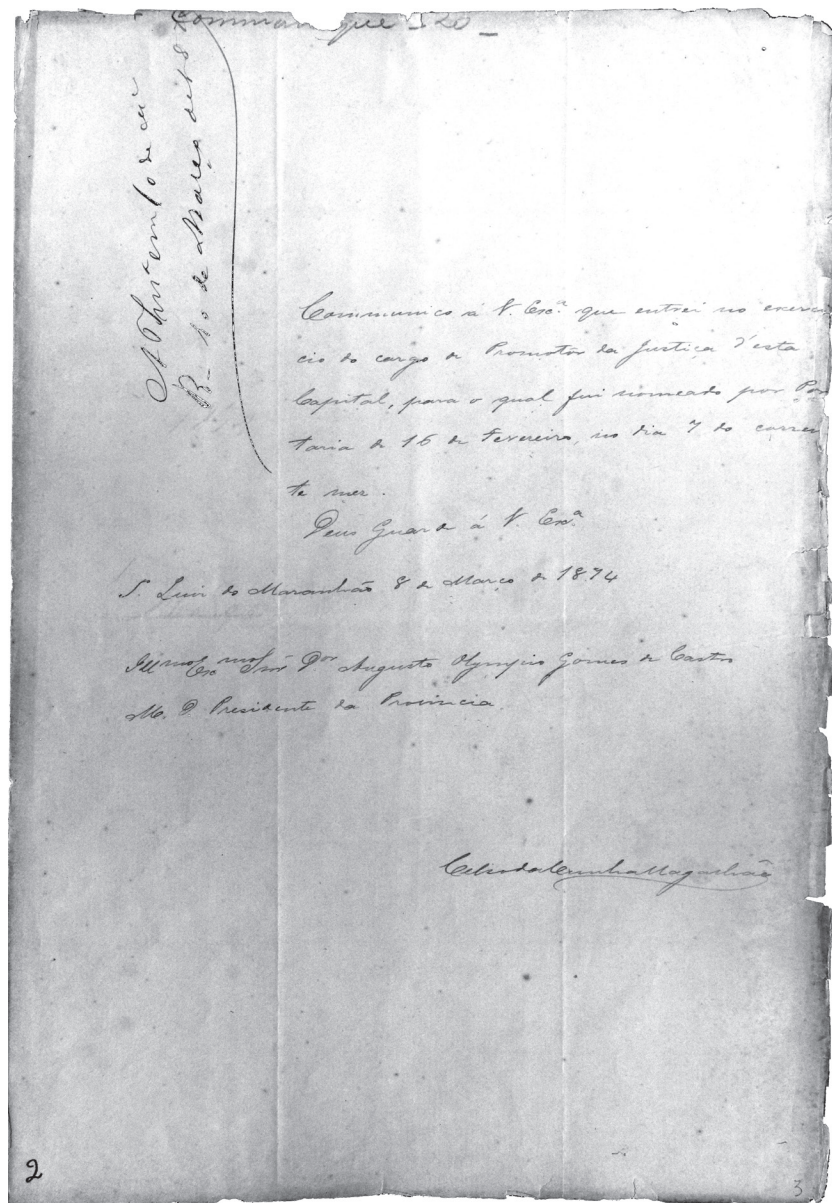 Communique-se
de Março de
Communico á V. Exª que entrei no exerci
cio do cargo de Promotor da Justiça d'esta
Capital, para o qual fui nomeado por Por
taria de 16 de Fevereiro, no dia 7 do corren
te mez.
Deus Guarde á V. Exª
S. Luiz do Maranhão 8 de Março de 1874
Illmo Exmo Snr Dor Augusto Olympio Gomes de Castro
M. D. Presidente da Provincia.
Celso da Cunha Magalhães
2
3